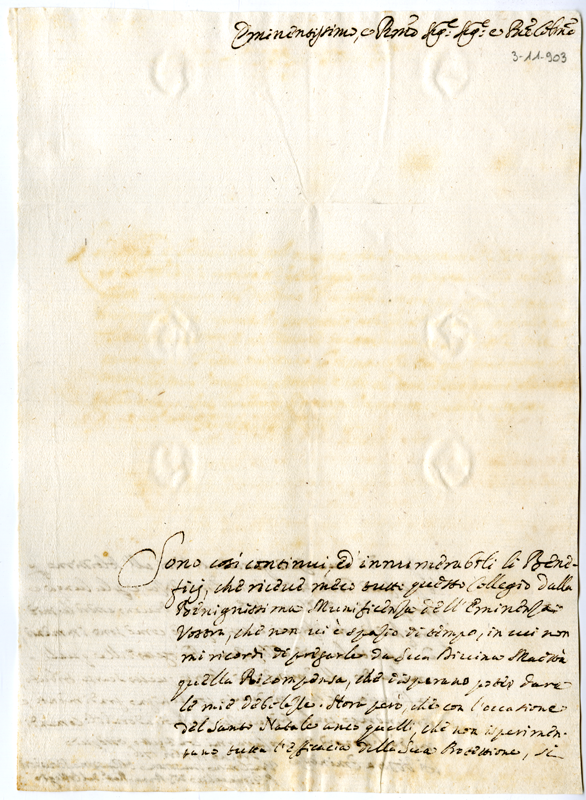 Eminentissimo, e Rmo Sigr. Sigr. e Prōn Colmo
3-11-903
Sono così continui, ed innumerabili li Bene-
ficij, che riceve meco tutto questo Collegio dalla
Benignissima Munificenza dell'Eminenza
Vostra, che non vi è spazio di tempo, in cui non
mi ricordi di pregarle da Sua Divina Maestà
quella Ricompensa, che disperano poter dare
le mie debolezze. Hora però, che con l'occasione
del Santo Natale anco quelli, che non isperimen-
tano tutta l'efficacia della Sua Protettione, si